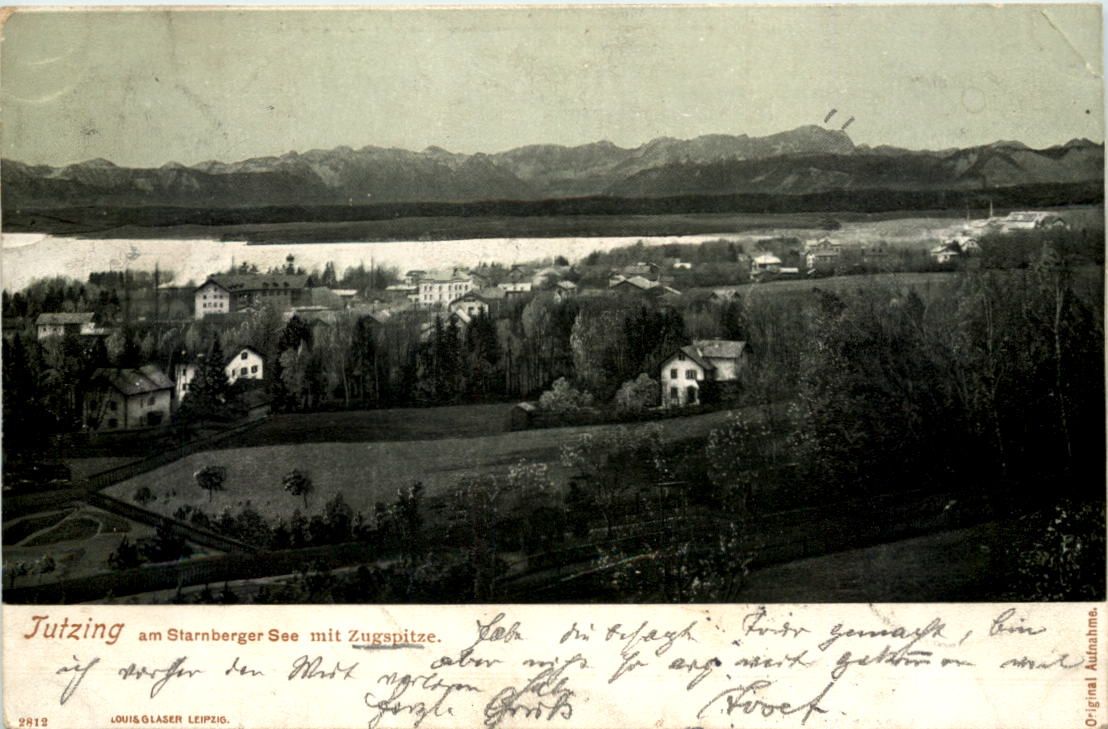 Tutzing am Starnberger See mit Zugspitze.
habe die besagte Tour gemacht, bin
ich vorher den Weit aber nicht so arg weit gekommen weil
verloren
herzl. Gruß Josef.
2812 LOUIS GLASER LEIPZIG.
Original Aufnahme.